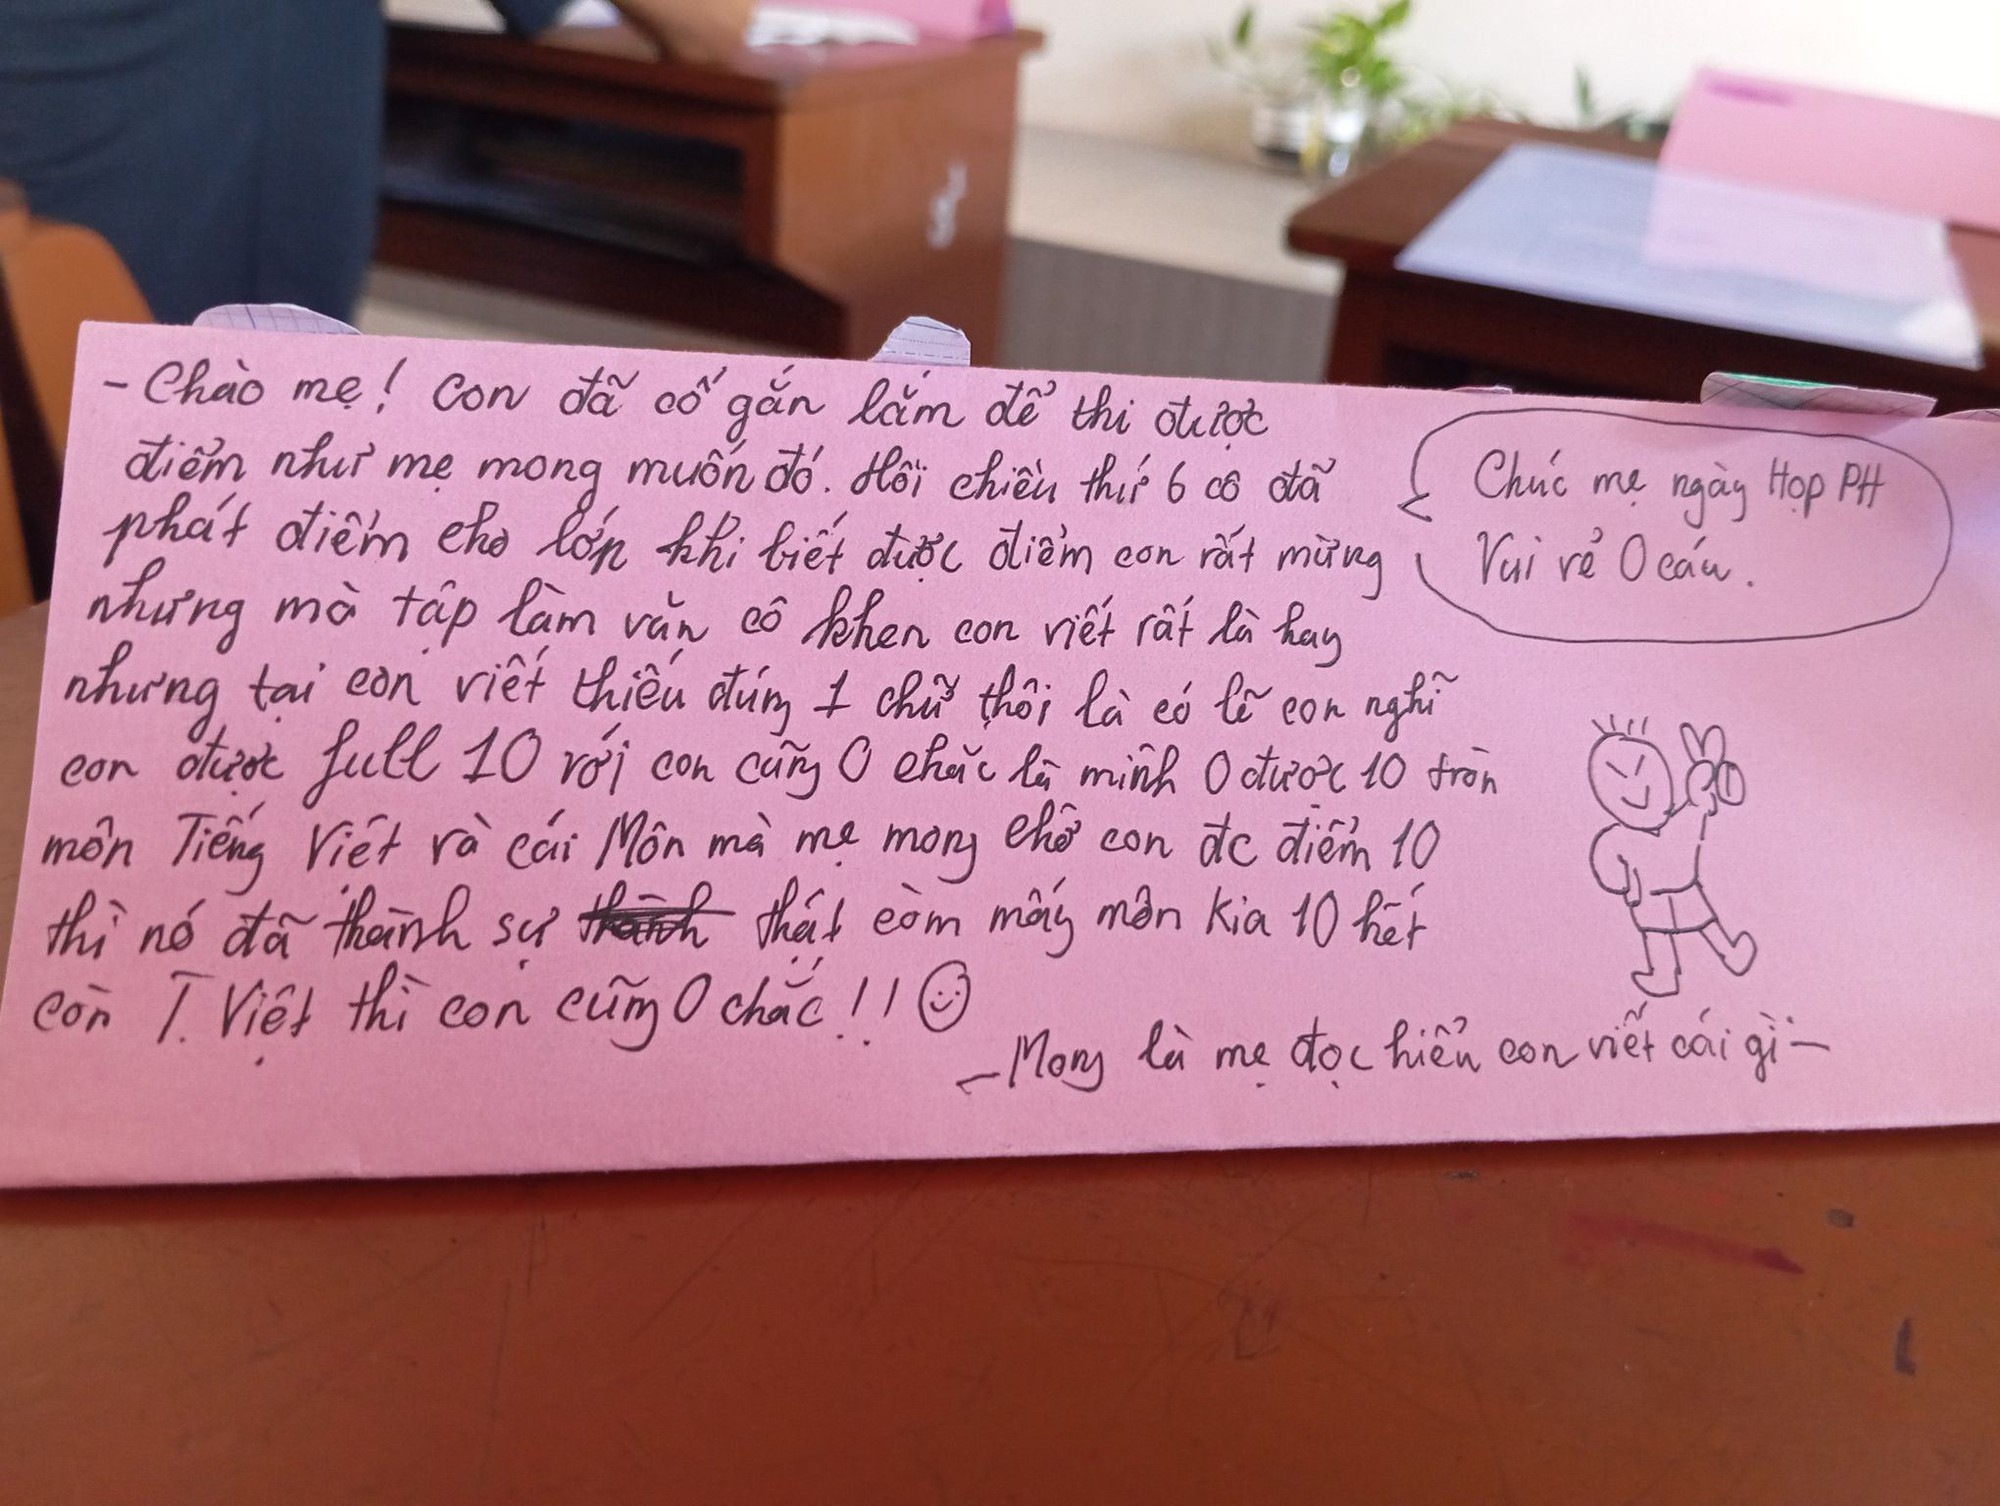 - Chào mẹ! Con đã cố gắn lắm để thi được
điểm như mẹ mong muốn đó. Hồi chiều thứ 6 cô đã
phát điểm cho lớp khi biết được điểm con rất mừng
nhưng mà tập làm văn cô khen con viết rất là hay
nhưng tại con viết thiếu đúng 1 chữ thôi là có lẽ con nghĩ
con được full 10 rồi con cũng 0 chắc là mình 0 được 10 tròn
môn Tiếng Việt và cái Môn mà mẹ mong chờ con đc điểm 10
thì nó đã thành sự thành thật còn mấy môn kia 10 hết
còn T. Việt thì con cũng 0 chắc!!
Chúc mẹ ngày Họp PH
Vui vẻ 0 cáu.
- Mong là mẹ đọc hiểu con viết cái gì -